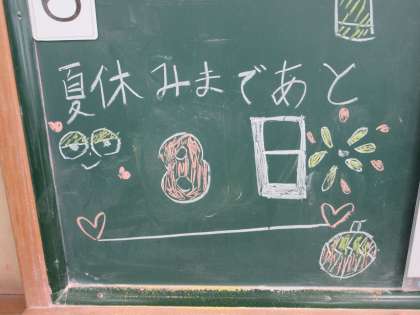 夏休みまであと
8日